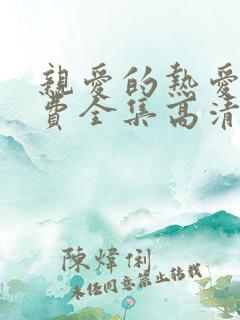 親愛的熱愛
費全集高清
陳煒俐
未经同意禁止转载